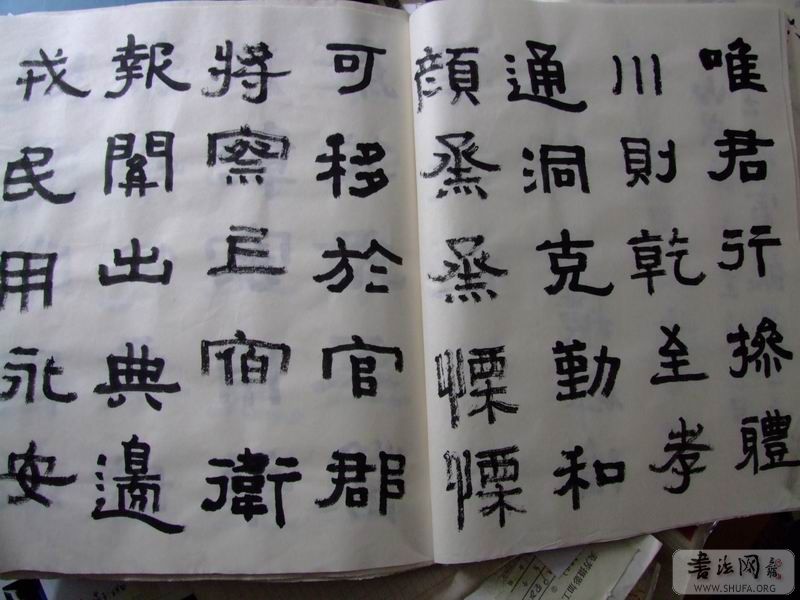 唯君行操體
川則乾至孝
通洞克勤和
顏烝烝慄慄
可移於官郡
將察宿衛
報關出典邊
戎民用永安
书法网
WWW.SHUFA.ORG